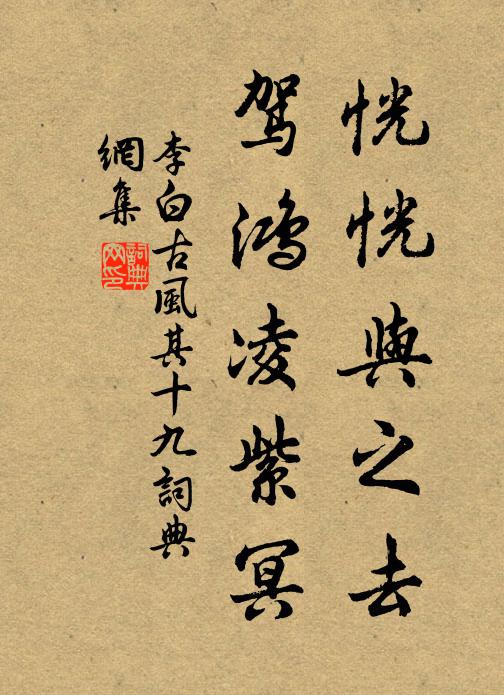 恍恍與之去
驾鸿凌紫冥
李白古風其十九詞典
網集
詞典
网印